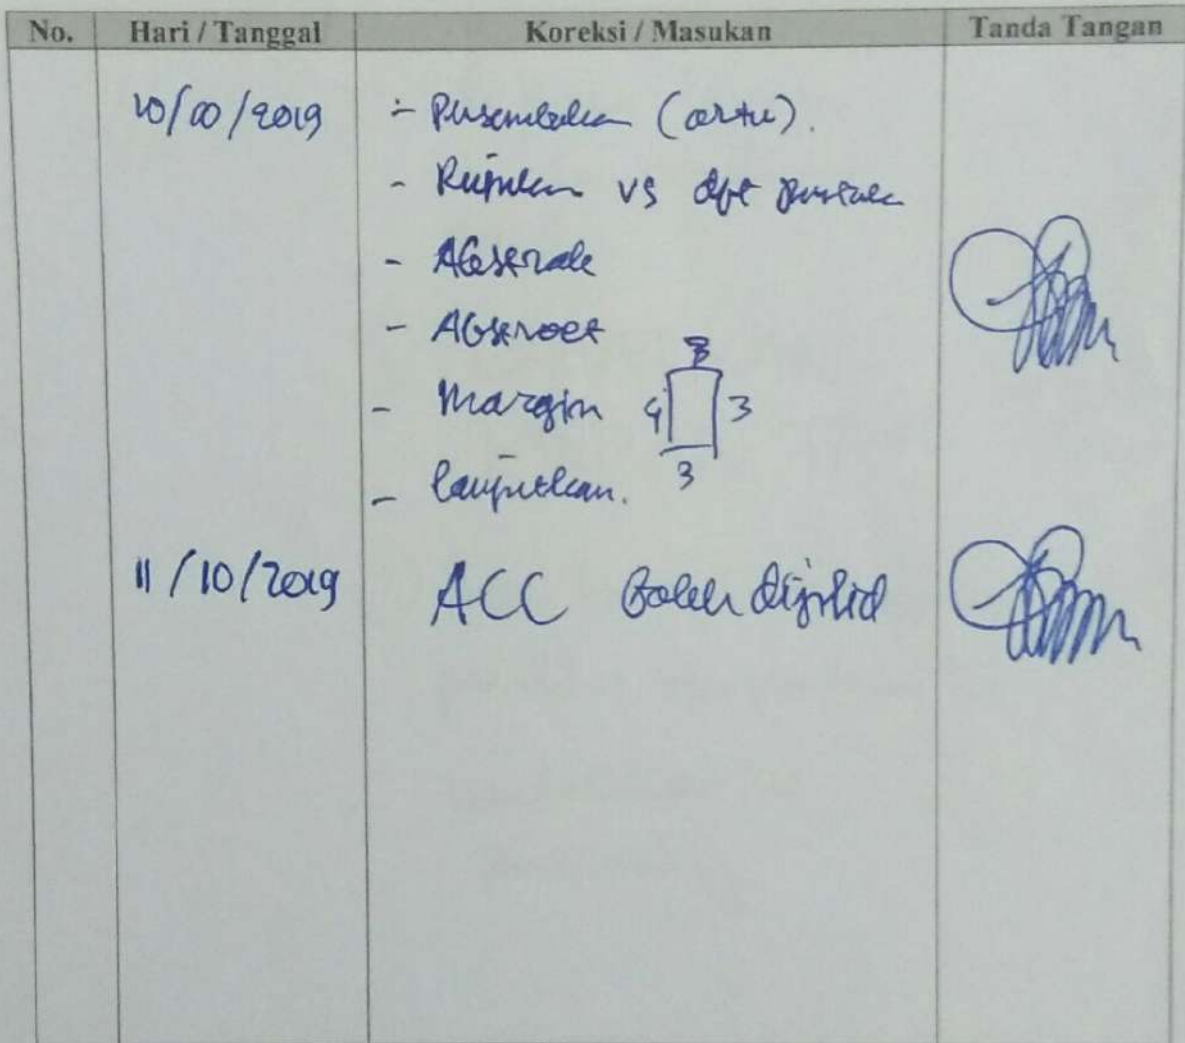 No. Hari / Tanggal Koreksi / Masukan Tanda Tangan
10/10/2019 - Persembahan (artu).
- Rujukan vs dft pustaka
- Abstrak
- Abstract
- Margin 4 3 3 3
- Lanjutkan.
11/10/2019 ACC Boleh dijilid